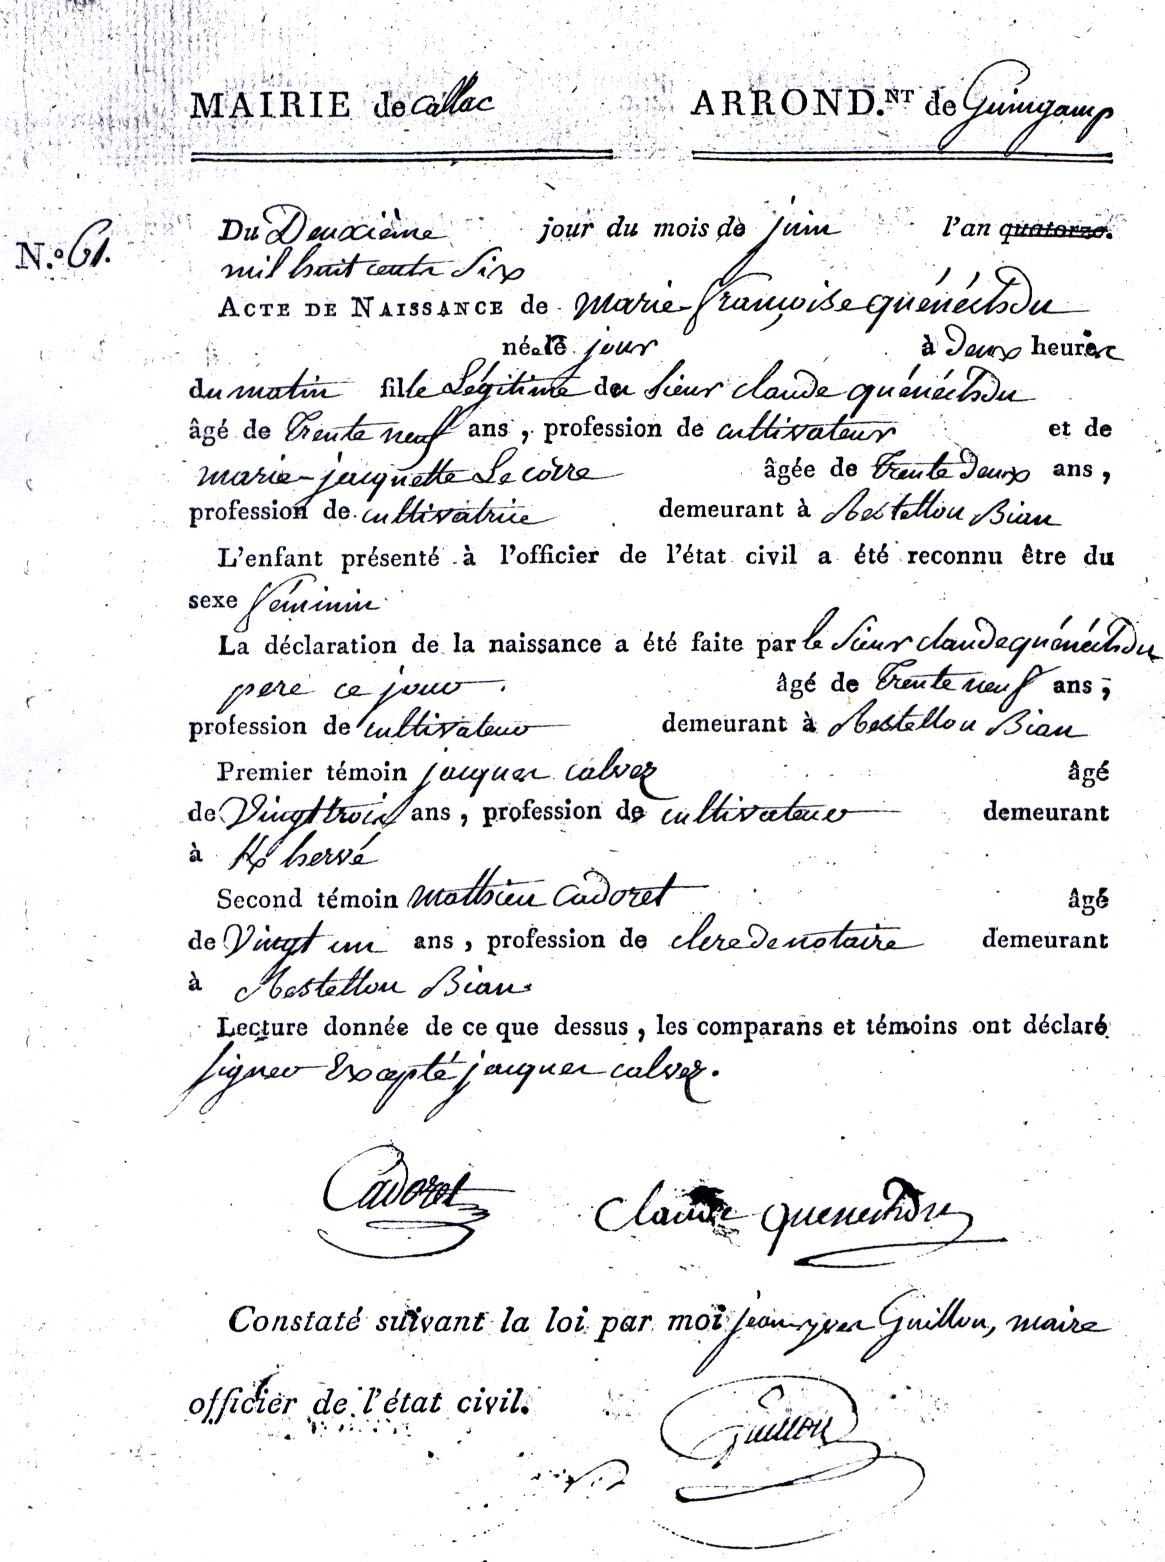 MAIRIE de Callac ARROND.NT de Guingamp
N.o 61.
Du Deuxième jour du mois de juin l'an quatorze.
mil huit cents Six
ACTE DE NAISSANCE de marie-françoise quénéchdu
né le jour à Deux heures
du matin fille Légitime du sieur claude quénéchdu
âgé de Trente neuf ans, profession de cultivateur et de
marie-jacquette Le coire âgée de Trente Deux ans,
profession de cultivatrice demeurant à Restellou Bian
L'enfant présenté à l'officier de l'état civil a été reconnu être du
sexe féminin
La déclaration de la naissance a été faite par le sieur claude quénéchdu
pere ce jour. âgé de Trente neuf ans,
profession de cultivateur demeurant à Restellou Bian
Premier témoin jacques calvez âgé
de Vingt trois ans, profession de cultivateur demeurant
à K hervé
Second témoin Mathieu Cadoret âgé
de Vingt un ans, profession de clerc de notaire demeurant
à Restellou Bian.
Lecture donnée de ce que dessus, les comparans et témoins ont déclaré
signer Excepté jacques calvez.
Cadoret Claude quenechdu
Constaté suivant la loi par moi jean yves Guillou, maire
officier de l'état civil.
Guillou